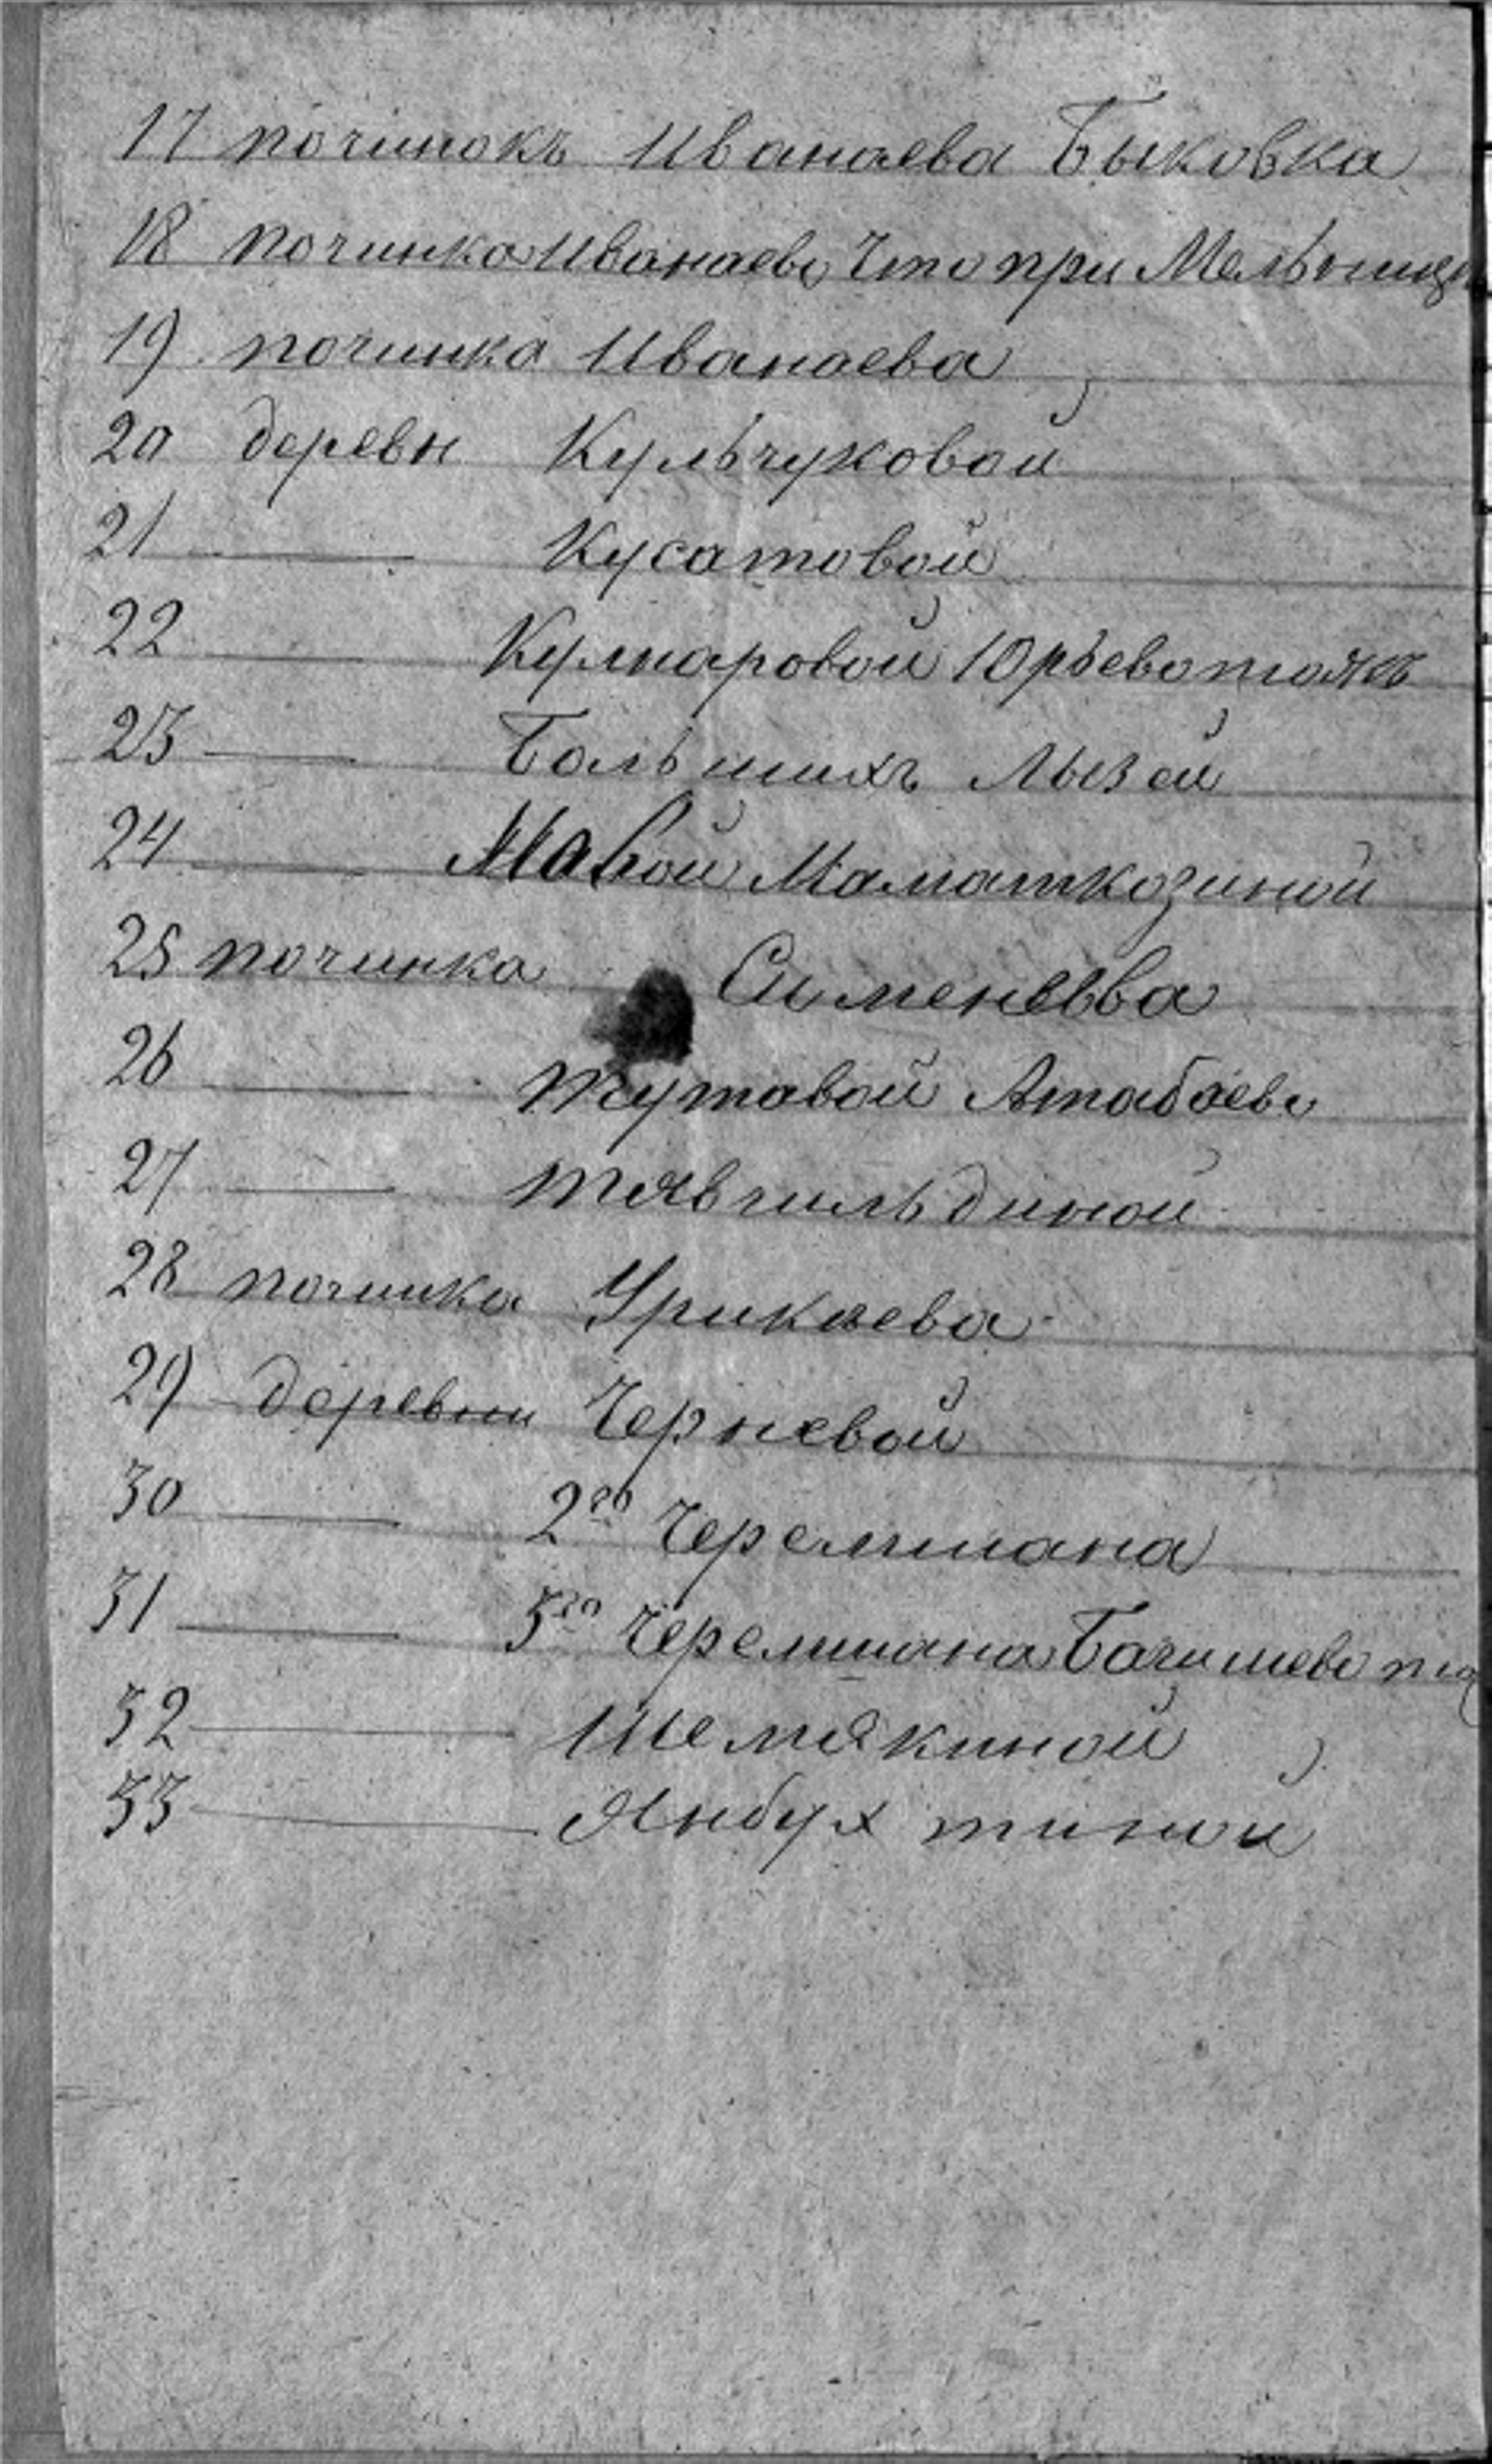 17 починокъ Иванаева Быковка
18 починка Иванаева Что при Мельнице
19 починка Иванаева
20 деревн Кульчуковой
21 — Кусатовой
22 — Кулнаровой Юрьево тожъ
23 — Большихъ Лызей
24 — Малой Маматкозиной
25 починка Сименеева
26 — тутавой Атабаева
27 — тявгильдиной
28 починка Урикаева
29 деревни Черневой
30 — 2го Черемшана
31 — 3го Черемшана Багишево то
32 — Шемякиной
33 — Янбухтиной